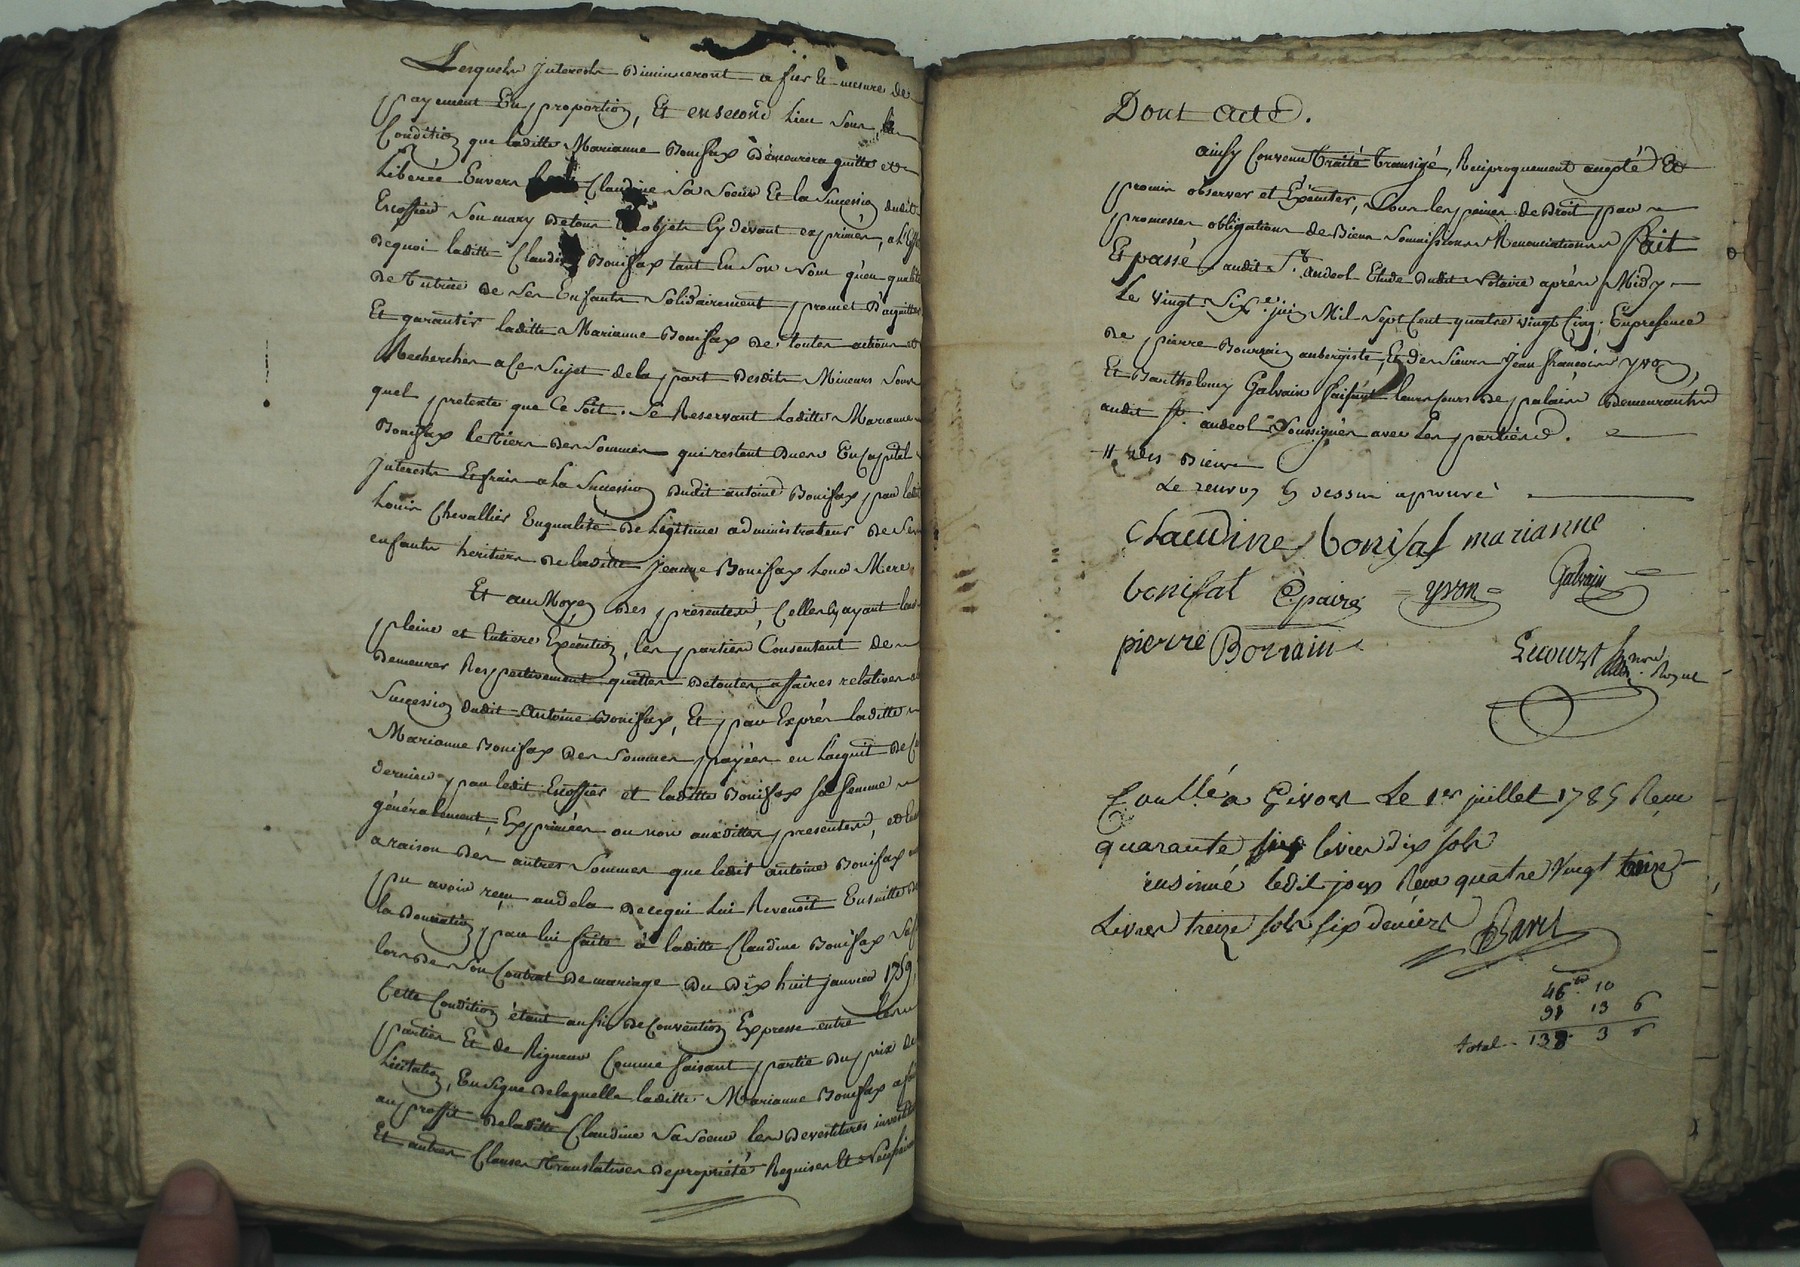 Lesquels Interests Diminueront a fur et mesure de
payement En proportion, Et en second Lieu sous la
Condition que laditte Marianne Bonifax demeurera quitte et
Liberée Envers Claudine Sa Soeur Et la Succession dudit
Escoffier Son mary de tous objets Cy devant exprimés, a L'Effet
de quoi laditte Claudine Bonifax tant En Son Nom qu'en qualité
de Tutrice de Ses Enfants Solidairement promet D'aquitter
Et garantir laditte Marianne Bonifax de toutes actions et
Recherches a Ce Sujet de la part Desdits Mineurs Sous
quel pretexte que Ce Soit. Se Reservant Laditte Marianne
Bonifax le tiers des Sommes qui restent Dues En Capital
Interests Et frais a la Succession Dudit antoine Bonifax par ledit
Louis Chevallier En qualité de Légitime administrateur de Ses
enfants heritiers de laditte Jeanne Bonifax Leur Mere.
Et au Moyen des presentes, Celles Cy ayant leur
pleine et Entiere Execution, les parties Consentent de
demeurer Respectivement quittes de toutes affaires relatives a
Succession dudit Antoine Bonifax, Et par Exprès laditte
Marianne Bonifax des Sommes payées en L'acquit de Ce
dernier par ledit Escoffier et laditte Bonifax sa femme
généralement, Exprimées ou non auxdittes presentes, et
a raison des autres Sommes que ledit antoine Bonifax
pu avoir reçu audela de ce qui Lui Revenoit Ensuitte de
la Donnation par lui faite à laditte Claudine Bonifax
lors de Son Contrat de mariage du Dix huit janvier 1759,
Cette Condition étant aussi de Convention Expresse entre les
parties Et de Rigueur Comme faisant partie du prix de
Licitation, En Signe de laquelle laditte Marianne Bonifax a fait
au proffit de laditte Claudine Sa Soeur les Devestitures
Et autres Clauses translatives de propriété Requises Et Necessaires
Dont acte.
ainsy Convenu traité transigé, Reciproquement accepté Et
promis observer et Exécuter, Sous les peines de Droit par
promesses obligations de Biens Soumissions Renonciations Fait
Et passé audit St. andeol Etude dudit Notaire après Midy
Le vingt Six.e juin Mil Sept Cent quatre vingt Cinq. En presence
de pierre Bourrain aubergiste, Et de Sieurs Jean François yvon,
Et Barthelemy Galvain faisant leurs jours de palais demeurants
audit St. andeol Soussignés avec Les parties.
# des Biens
Le renvoy cy dessus aprouvé
Claudine bonifaf marianne
bonifat Epaire yvon Galvain
pierre Borrain
Lecourt
Con.llé a Givors Le 1er juillet 1785 Reçu
quarante six livres dix sols
insinué ledit jour Reçu quatre Vingt
Livres treize sols six deniers Baret
46 lt 10
91 13 6
total 138 3 6